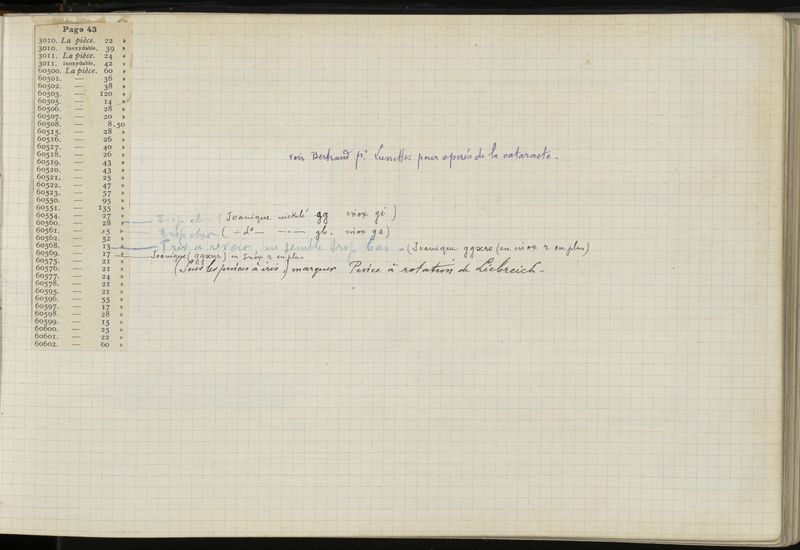 Page 43
3010. La pièce. 22 »
3010. inoxydable, 39 »
3011. La pièce. 24 »
3011. inoxydable, 42 »
60500. La pièce. 60 »
60501. — 36 »
60502. — 38 »
60503. — 120 »
60505. — 14 »
60506. — 28 »
60507. — 20 »
60508. — 8.50
60515. — 28 »
60516. — 26 »
60517. — 40 »
60518. — 26 »
60519. — 43 »
60520. — 43 »
60521. — 25 »
60522. — 47 »
60523. — 57 »
60550. — 95 »
60551. — 135 »
60554. — 27 »
60560. — 28 »
60561. — 25 »
60562. — 52 »
60568. — 13 »
60569. — 17 »
60575. — 21 »
60576. — 21 »
60577. — 24 »
60578. — 21 »
60595. — 21 »
60596. — 55 »
60597. — 17 »
60598. — 28 »
60599. — 15 »
60600. — 25 »
60601. — 22 »
60602. — 60 »
voir Bertrand pr Lunettes pour operés de la cataracte.
Trop cher (Joanique nickelé gg inox gi)
Trop cher ( — do — — " — gb. inox go)
Prix à revoir, me semble trop bas — (Joanique ggxro (en inox r en plus)
Joanique (ggxur) en Inox r en plus
(Sous les pinces à iris) marquer Pince à rotation de Liebreich —